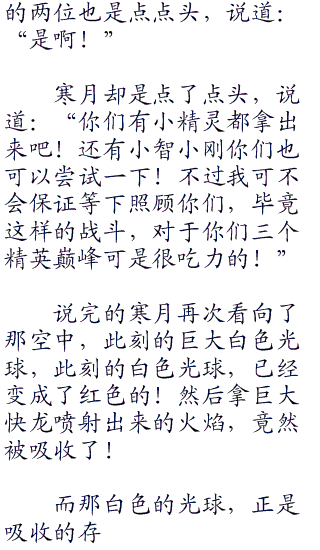 的两位也是点点头，说道：
“是啊！”
寒月却是点了点头，说
道：“你们有小精灵都拿出
来吧！还有小智小刚你们也
可以尝试一下！不过我可不
会保证等下照顾你们，毕竟
这样的战斗，对于你们三个
精英巅峰可是很吃力的！”
说完的寒月再次看向了
那空中，此刻的巨大白色光
球，此刻的白色光球，已经
变成了红色的！然后拿巨大
快龙喷射出来的火焰，竟然
被吸收了！
而那白色的光球，正是
吸收的存